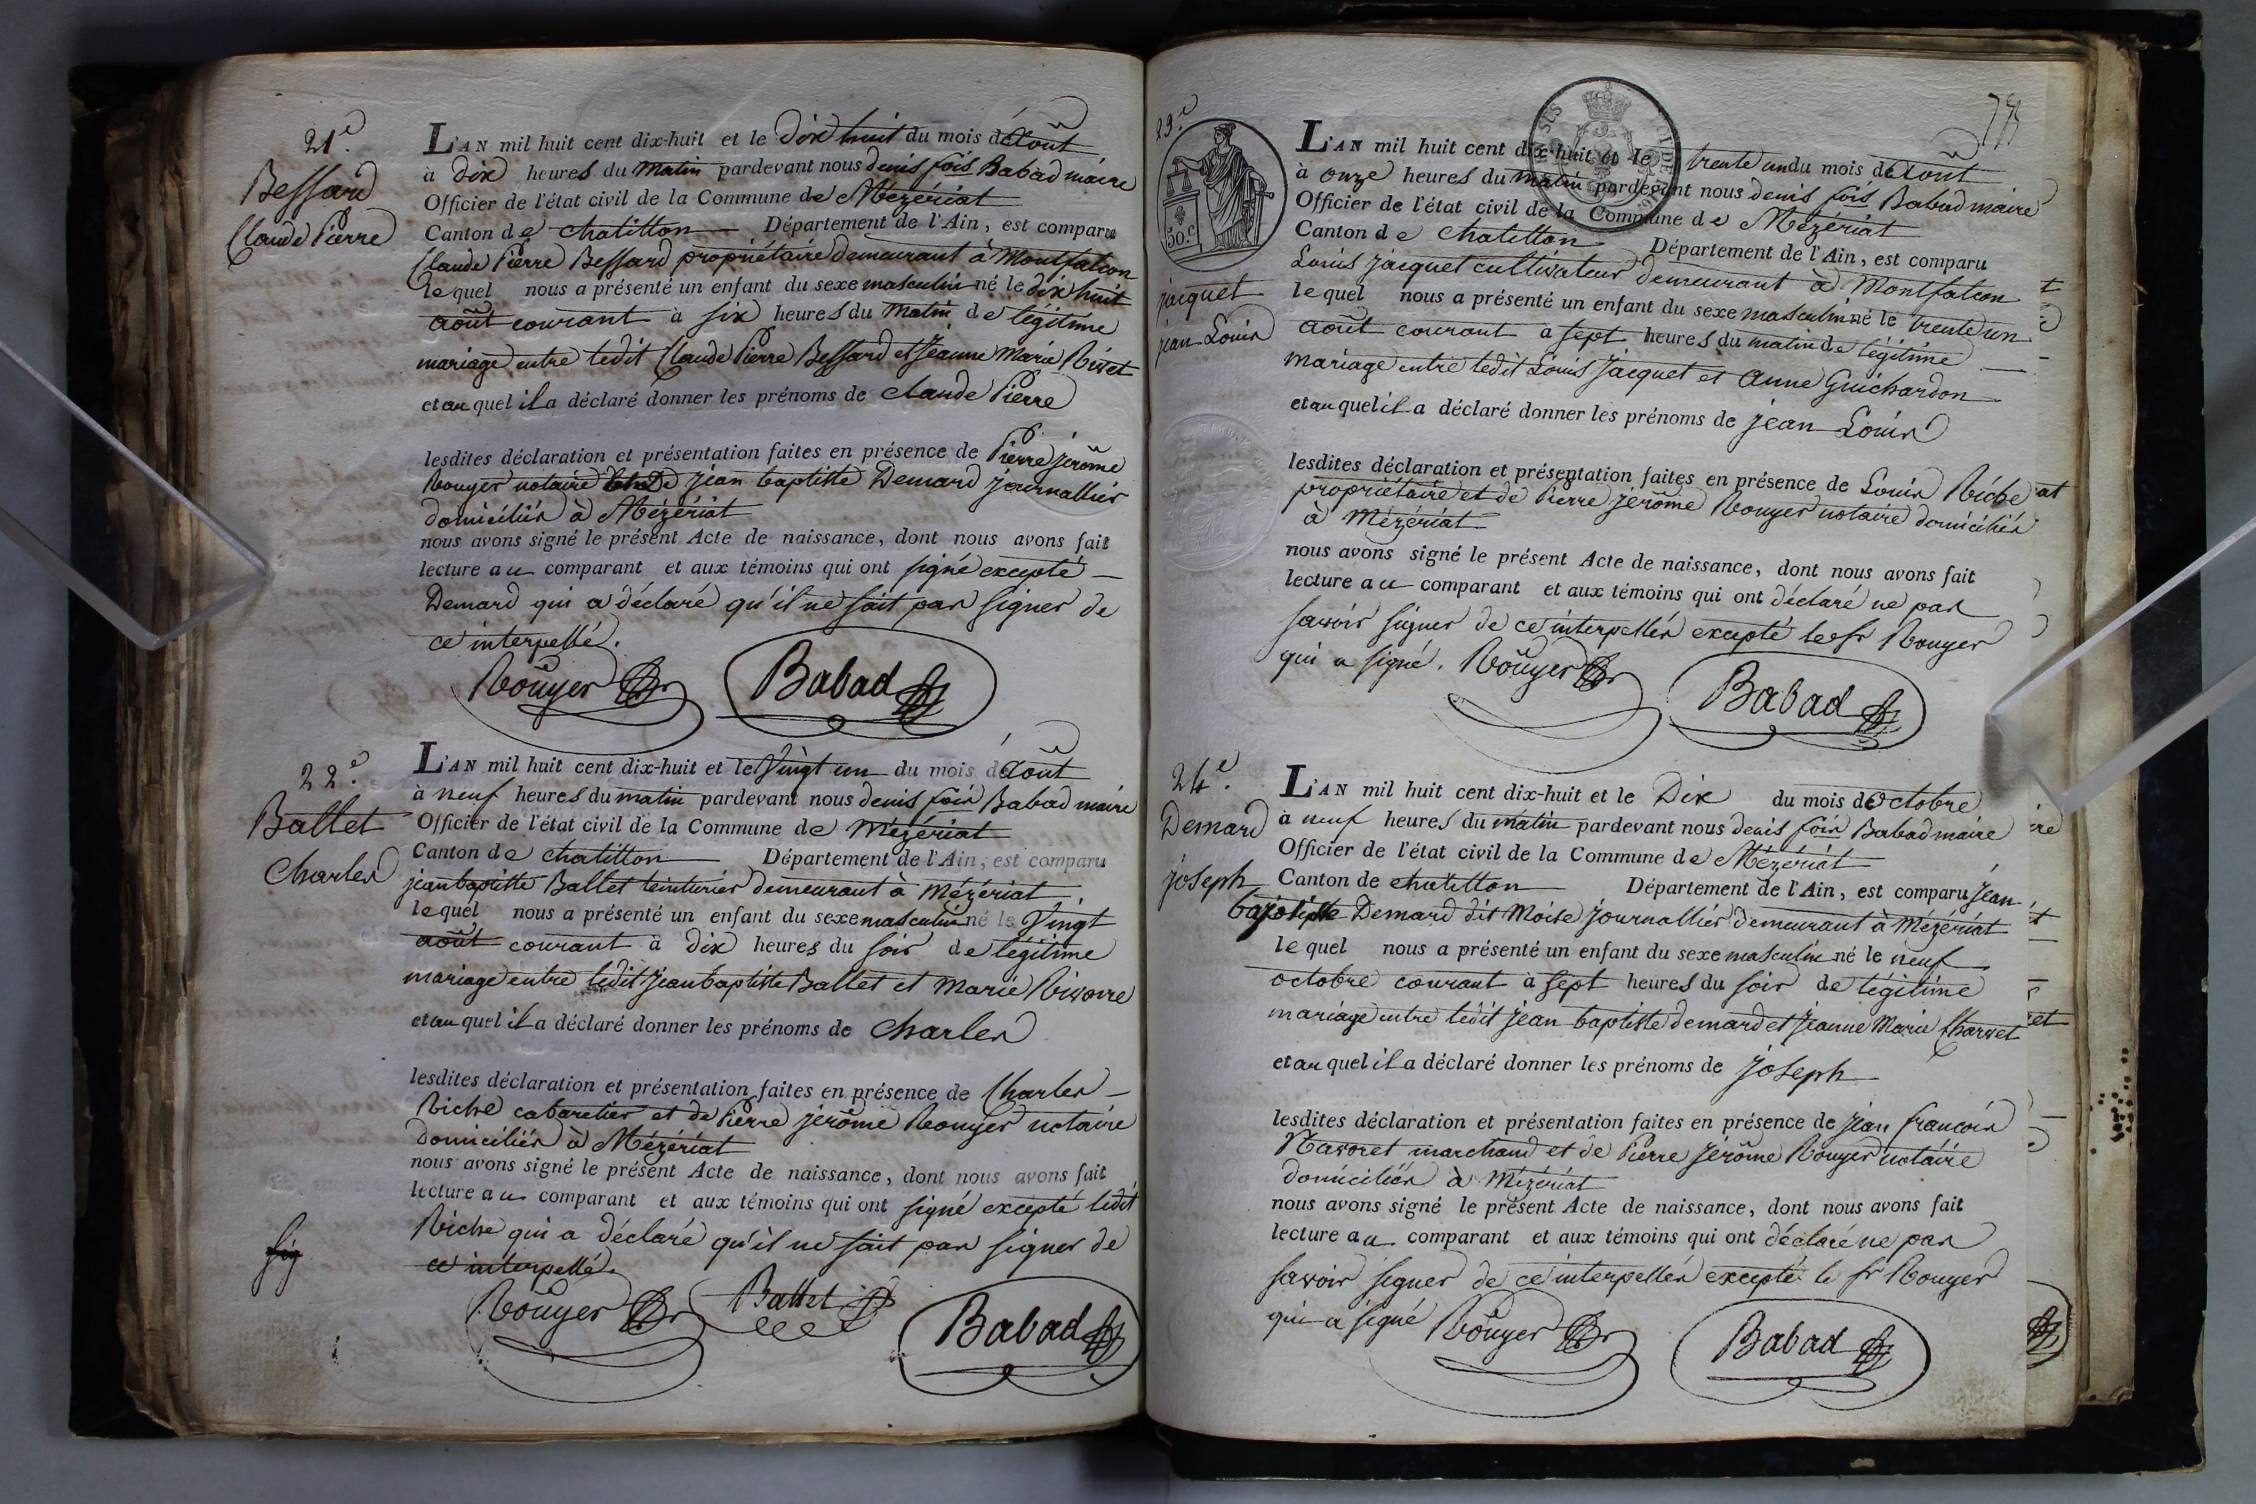 21.e
Bessard
Claude Pierre
L'AN mil huit cent dix-huit et le dix huit du mois d'août
à dix heures du matin pardevant nous denis fois Babad maire
Officier de l'état civil de la Commune de Mézériat
Canton de chatillon Département de l'Ain, est comparu
Claude Pierre Bessard propriétaire demeurant à Montfalcon
lequel nous a présenté un enfant du sexe masculin né le dix huit
août courant à six heures du matin de légitime
mariage entre ledit Claude Pierre Bessard et Jeanne Marie Rivet
et au quel il a déclaré donner les prénoms de claude Pierre
lesdites déclaration et présentation faites en présence de Pierre jérôme
Rouyer notaire et de jean baptiste Demard journallier
domiciliés à Mézériat
nous avons signé le présent Acte de naissance, dont nous avons fait
lecture au comparant et aux témoins qui ont signé excepté
Demard qui a déclaré qu'il ne sait pas signer de
ce interpellé.
Rouyer Babad
22.e
Ballet
Charles
L'AN mil huit cent dix-huit et le Vingt un du mois d'août
à neuf heures du matin pardevant nous denis fois Babad maire
Officier de l'état civil de la Commune de Mézériat
Canton de chatillon Département de l'Ain, est comparu
jean baptiste Ballet teinturier demeurant à Mézériat
lequel nous a présenté un enfant du sexe masculin né le Vingt
août courant à dix heures du soir de légitime
mariage entre ledit Jean baptiste Ballet et Marie Rivoire
et au quel il a déclaré donner les prénoms de Charles
lesdites déclaration et présentation faites en présence de Charles
Riche cabaretier et de Pierre jérôme Rouyer notaire
domiciliés à Mézériat
nous avons signé le présent Acte de naissance, dont nous avons fait
lecture au comparant et aux témoins qui ont signé excepté ledit
Riche qui a déclaré qu'il ne sait pas signer de
ce interpellé.
Rouyer Ballet Babad
23.e
50.c
jacquet
jean Louis
L'AN mil huit cent dix-huit et le trente un du mois d'août
à onze heures du matin pardevant nous denis fois Babad maire
Officier de l'état civil de la Commune de Mézériat
Canton de chatillon Département de l'Ain, est comparu
Louis jacquet cultivateur demeurant à Montfalcon
lequel nous a présenté un enfant du sexe masculin né le trente un
août courant à sept heures du matin de légitime
mariage entre ledit Louis jacquet et anne Guichardon
et au quel il a déclaré donner les prénoms de jean Louis
lesdites déclaration et présentation faites en présence de Louis Riche
propriétaire et de Pierre jérôme Rouyer notaire domiciliés
à Mézériat
nous avons signé le présent Acte de naissance, dont nous avons fait
lecture au comparant et aux témoins qui ont déclaré ne pas
savoir signer de ce interpellés excepté le sr Rouyer
qui a signé. Rouyer Babad
24.e
Demard
joseph
L'AN mil huit cent dix-huit et le Dix du mois d'octobre
à neuf heures du matin pardevant nous denis fois Babad maire
Officier de l'état civil de la Commune de Mézériat
Canton de chatillon Département de l'Ain, est comparu jean
baptiste Demard dit Moise journallier demeurant à Mézériat
lequel nous a présenté un enfant du sexe masculin né le neuf
octobre courant à sept heures du soir de légitime
mariage entre ledit jean baptiste demard et jeanne Marie Charvet
et au quel il a déclaré donner les prénoms de joseph
lesdites déclaration et présentation faites en présence de jean francois
Navoret marchand et de Pierre jérôme Rouyer notaire
domiciliés à Mézériat
nous avons signé le présent Acte de naissance, dont nous avons fait
lecture au comparant et aux témoins qui ont déclaré ne pas
savoir signer de ce interpellés excepté le sr Rouyer
qui a signé Rouyer Babad